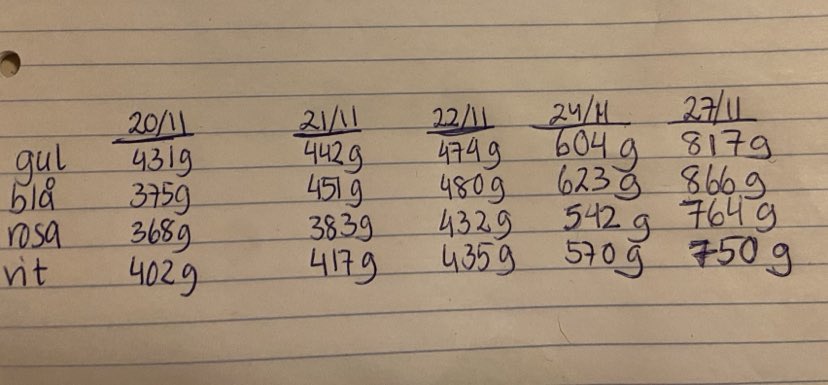 20/11 21/11 22/11 24/11 27/11
gul 431g 442g 474g 604g 817g
blå 375g 451g 480g 623g 866g
rosa 368g 383g 432g 542g 764g
vit 402g 417g 435g 570g 750g